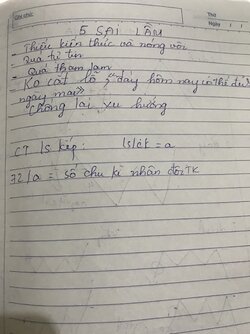 Ghi chú:
Thứ
Ngày
5 SAI LẦM
- Thiếu kiến thức và nóng vội
- Quá tự tin
- Quá tham lam
- Ko cắt lỗ, "đáy hôm nay có thể là
ngày mai"
- Chống lại xu hướng
CT ls kép: ls/ck = a
72/a = số chu kì nhân đôi TK